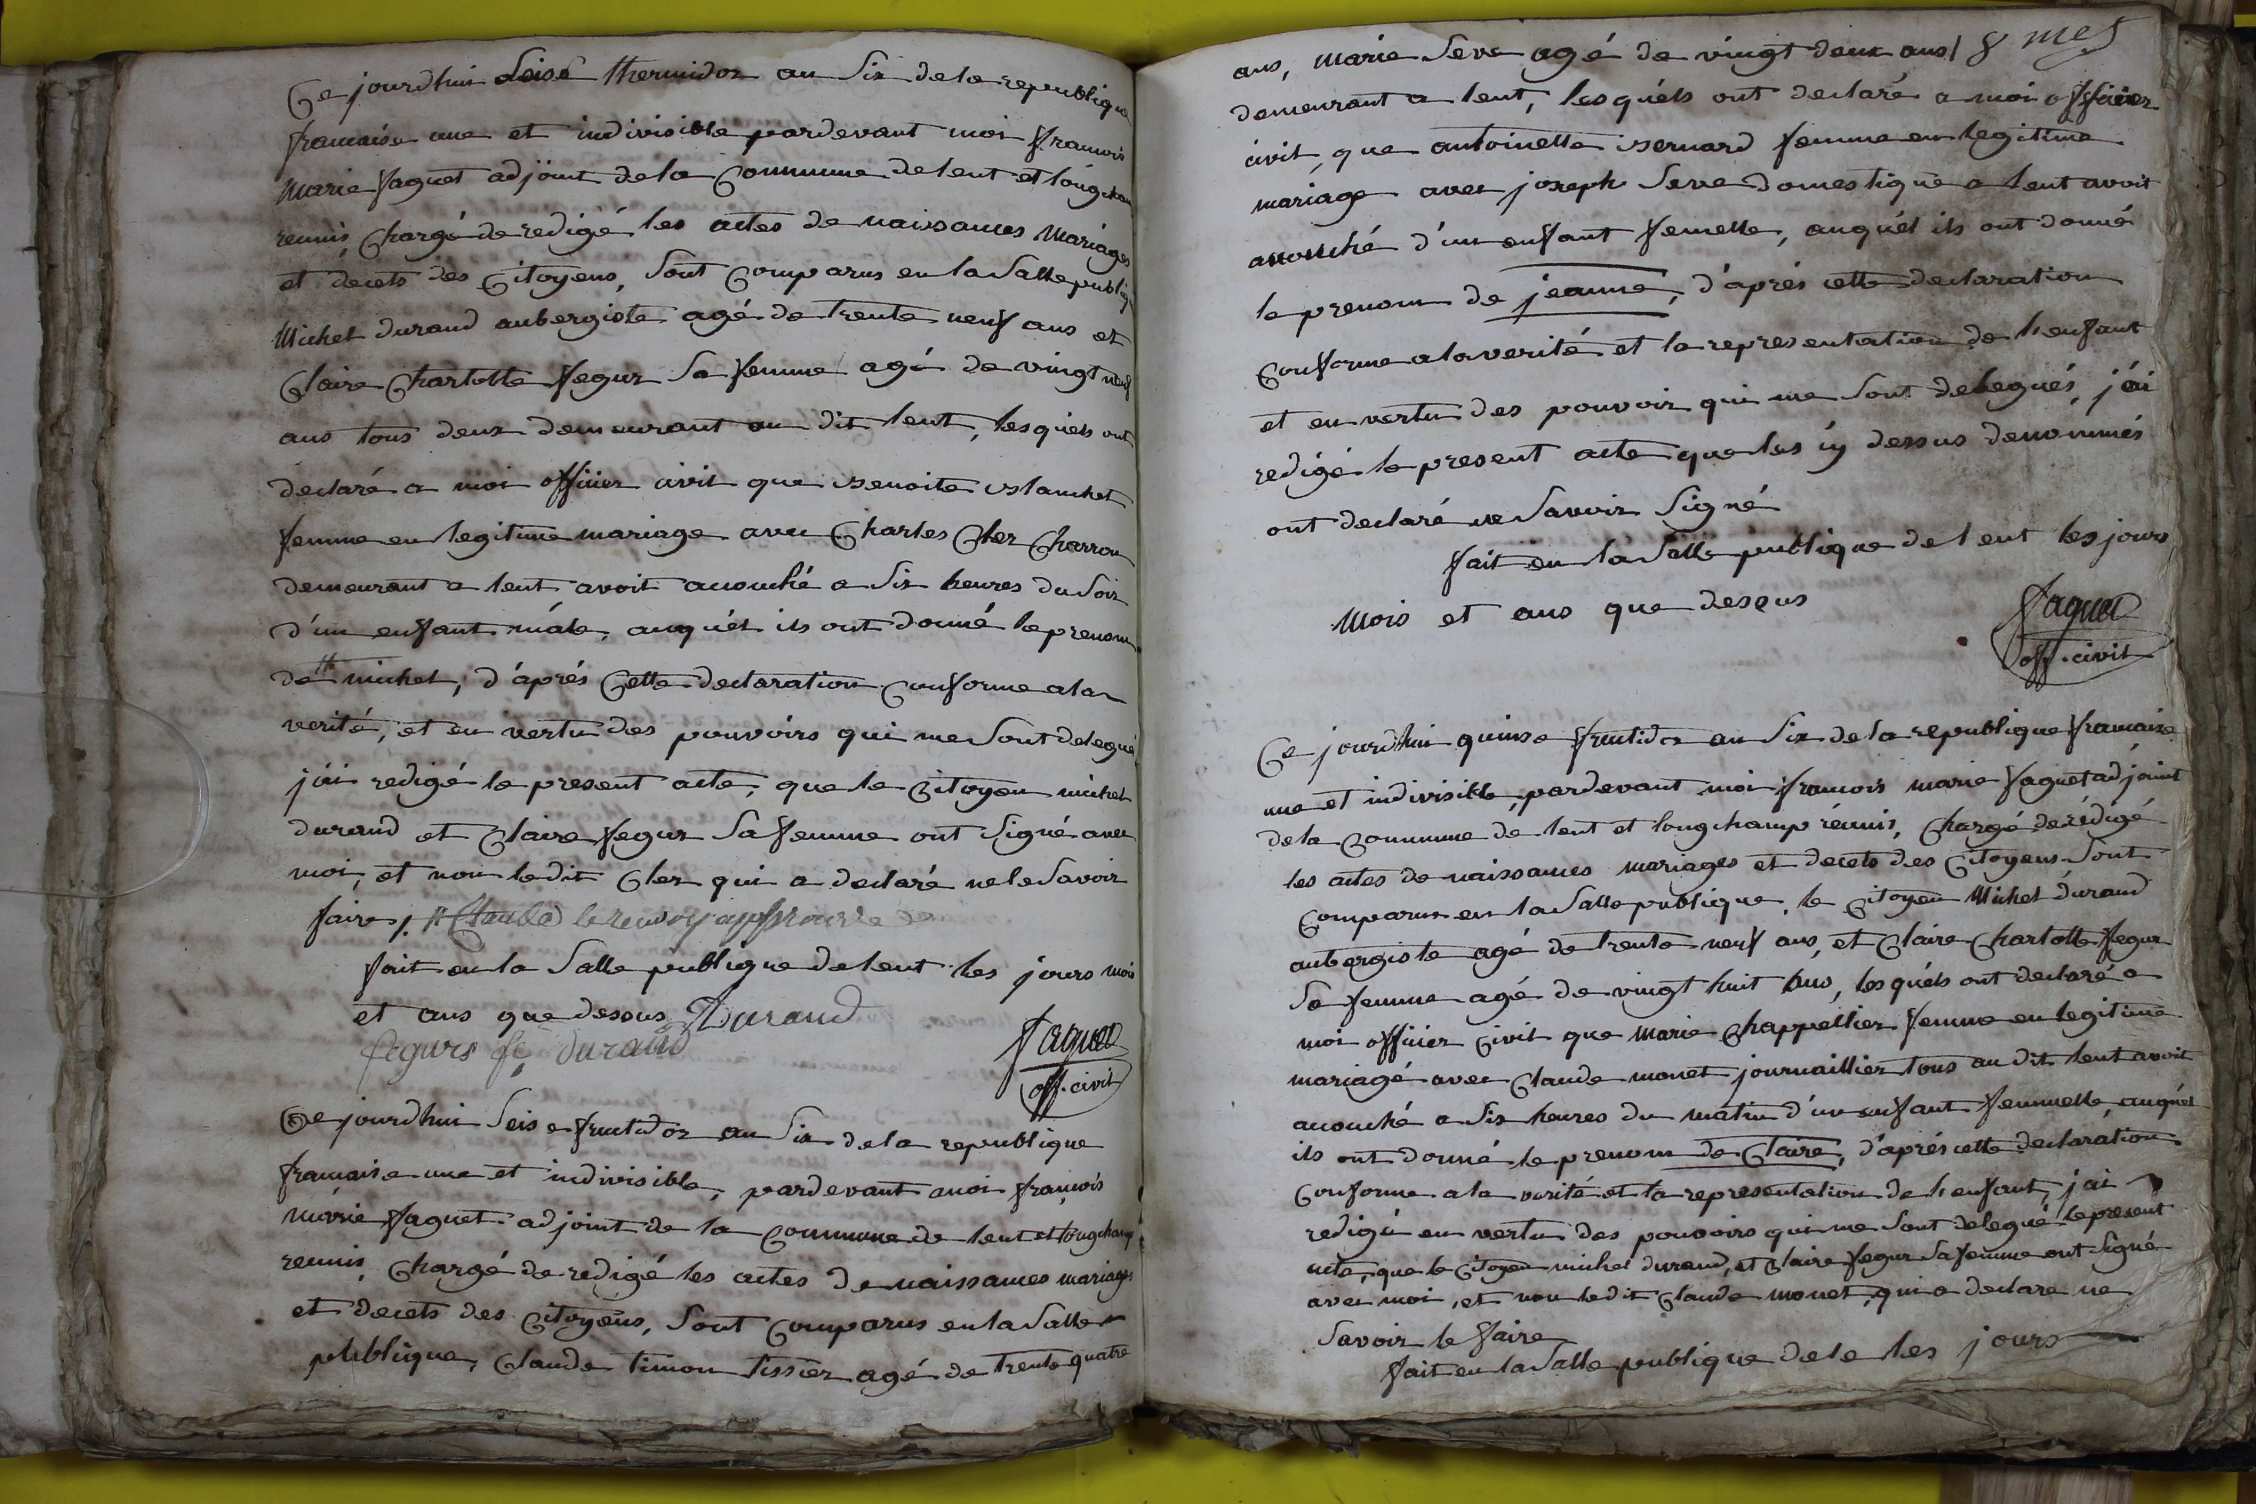 Ce jourdhui seise thermidor an six de la republique
francaise une et indivisible pardevant moi francois
Marie faguet adjoint de la commune de lent et longchamp
reunis, chargé de redigé les actes de naissances Mariages
et decets des citoyens, sont comparus en la Salle publiq
Michel durand aubergiste agé de trente neuf ans et
Claire Charlotte fegur sa femme agé de vingt neuf
ans tous deux demeurant au dit lent, lesquels ont
declaré a moi officier civil que Benoite Blanchet
femme en legitime mariage avec Charles Cler Charron
demeurant a lent avoit acouché a six heures du soir
d'un enfant mâle, auquél ils ont donné le prenom
de # michel, d'aprés Cette declaration conforme a la
verité, et en vertu des pouvoirs qui me sont delegué
j'ai redigé le present acte, que le citoyen michel
durand et Claire fegur sa femme ont signé avec
moi, et non ledit Cler qui a declaré ne le savoir
faire /. # Claude le renvoy approuvé
fait en la Salle publique de lent les jours mois
et ans que dessus Durand
fegurs fe durand
faguet
off. civil
Ce jourdhui seise fructidor an six de la republique
francaise une et indivisible, pardevant moi françois
marie faguet adjoint de la commune de lent et longchamp
reunis, chargé de redigé les actes de naissances mariages
et decets des citoyens, sont comparus en la Salle
publique, Claude timon tissier agé de trente quatre
ans, Marie Seve agé de vingt deux ans/ 8 mes
demeurant a lent, lesquéls ont declaré a moi officier
civil, que antoinette Bernard femme en legitime
mariage avec joseph Seve domestique a lent avoit
acouché d'un enfant femelle, auquél ils ont donné
le prenom de jeanne, d'aprés cette declaration
Conforme a la verité et la representation de l'enfant
et en vertu des pouvoir qui me sont delegués, j'ai
redigé le present acte que les cy dessus denommés
ont declaré ne savoir signé
fait en la Salle publique de lent les jours
Mois et ans que dessus
faguet
off. civil
Ce jourdhui quinse fructidor an six de la republique francaise
une et indivisible, pardevant moi francois marie faguet adjoint
de la commune de lent et longchamp réunis, chargé de rédigé
les actes de naissances mariages et decets des citoyens sont
Comparus en la Salle publique, le citoyen Michel durand
aubergiste agé de trente neuf ans, et Claire Charlotte fegur
sa femme agé de vingt huit ans, lesquéls ont declaré a
moi officier civil que Marie Chappellier femme en legitime
mariagé avec Claude monet journaillier tous au dit lent avoit
acouché a six heures du matin d'un enfant femmelle, auquél
ils ont donné le prenom de Claire, d'aprés cette declaration
Conforme a la verité et la representation de l'enfant, j'ai
redigé en vertu des pouvoirs qui me sont delegué le present
acte, que le citoyen michel durand, et Claire fegur sa femme ont signé
avec moi, et non ledit Claude monet, qui a declare ne
savoir le faire
fait en la Salle publique de le les jours